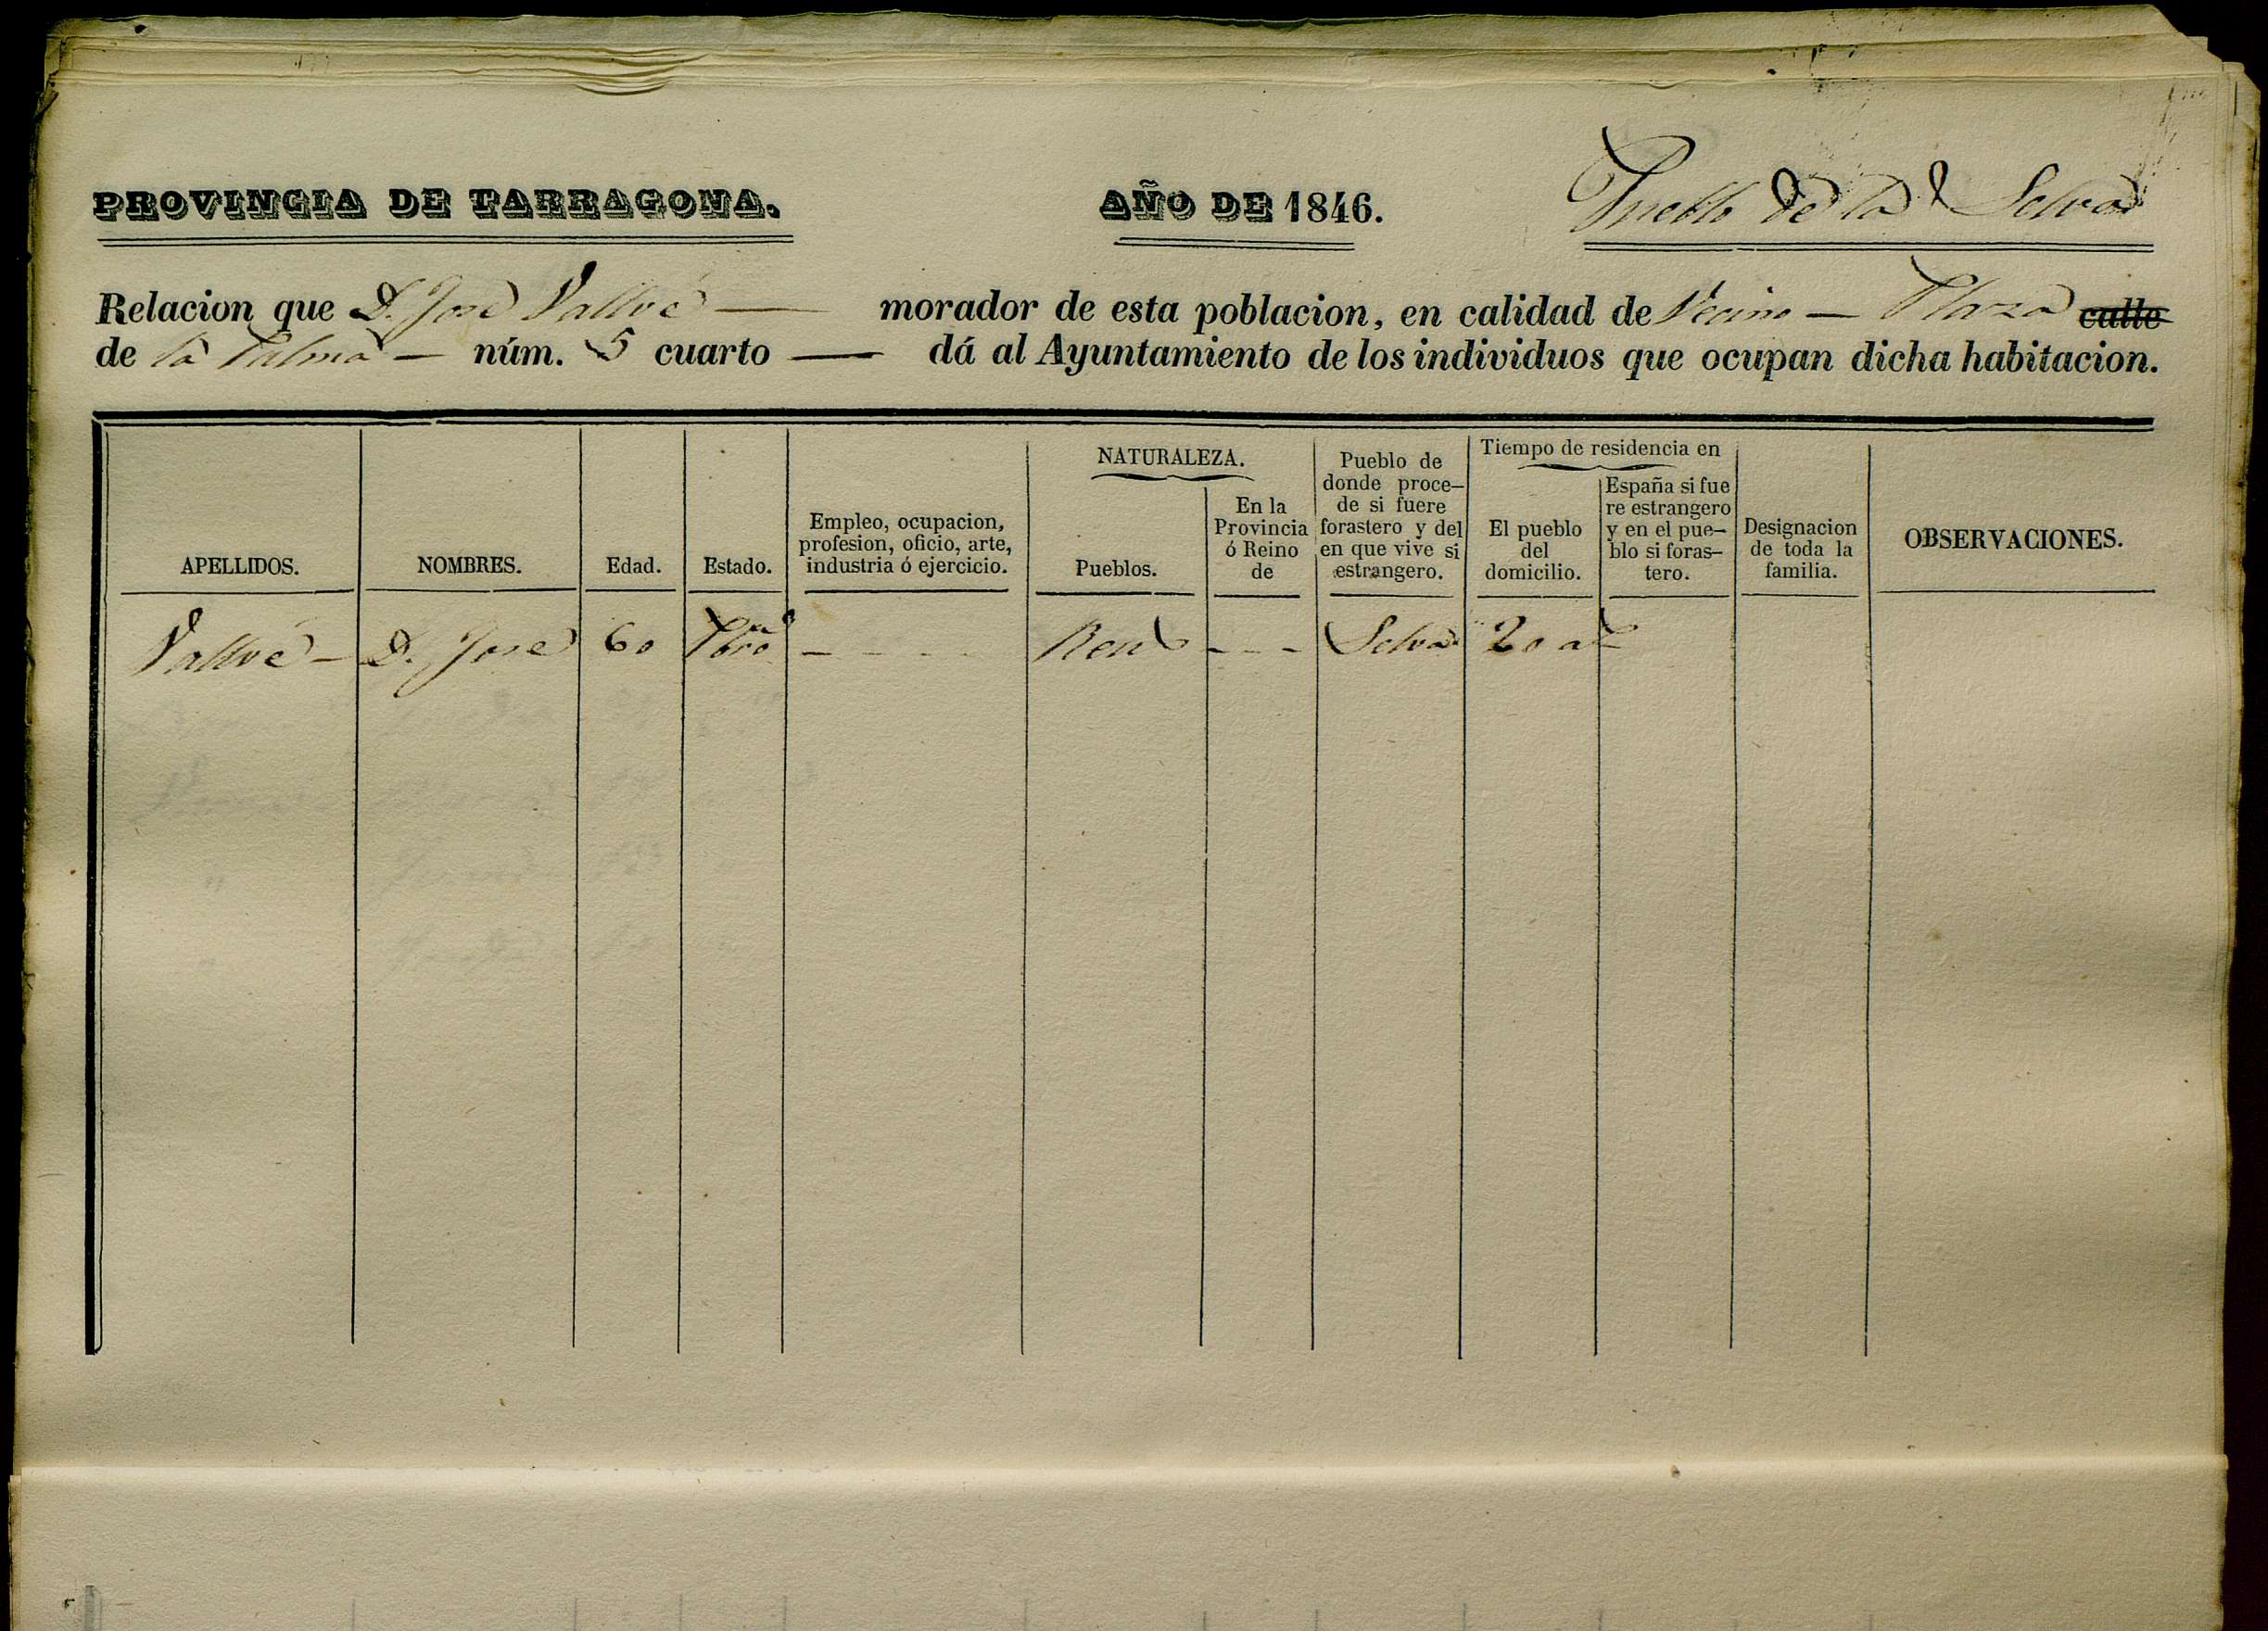 PROVINCIA DE TARRAGONA. AÑO DE 1846. Pueblo de la Selva
Relacion que D. José Vallvé — morador de esta poblacion, en calidad de Vecino — Plaza calle
de la Palma — núm. 5 cuarto — dá al Ayuntamiento de los individuos que ocupan dicha habitacion.
APELLIDOS.
NOMBRES.
Edad.
Estado.
Empleo, ocupacion,
profesion, oficio, arte,
industria ó ejercicio.
NATURALEZA.
Pueblos.
En la
Provincia
ó Reino
de
Pueblo de
donde proce-
de si fuere
forastero y del
en que vive si
estrangero.
Tiempo de residencia en
El pueblo
del
domicilio.
España si fue
re estrangero
y en el pue-
blo si foras-
tero.
Designacion
de toda la
familia.
OBSERVACIONES.
Vallvé - D. José 60 Pbro - - - - Reus - - - Selva 20 a